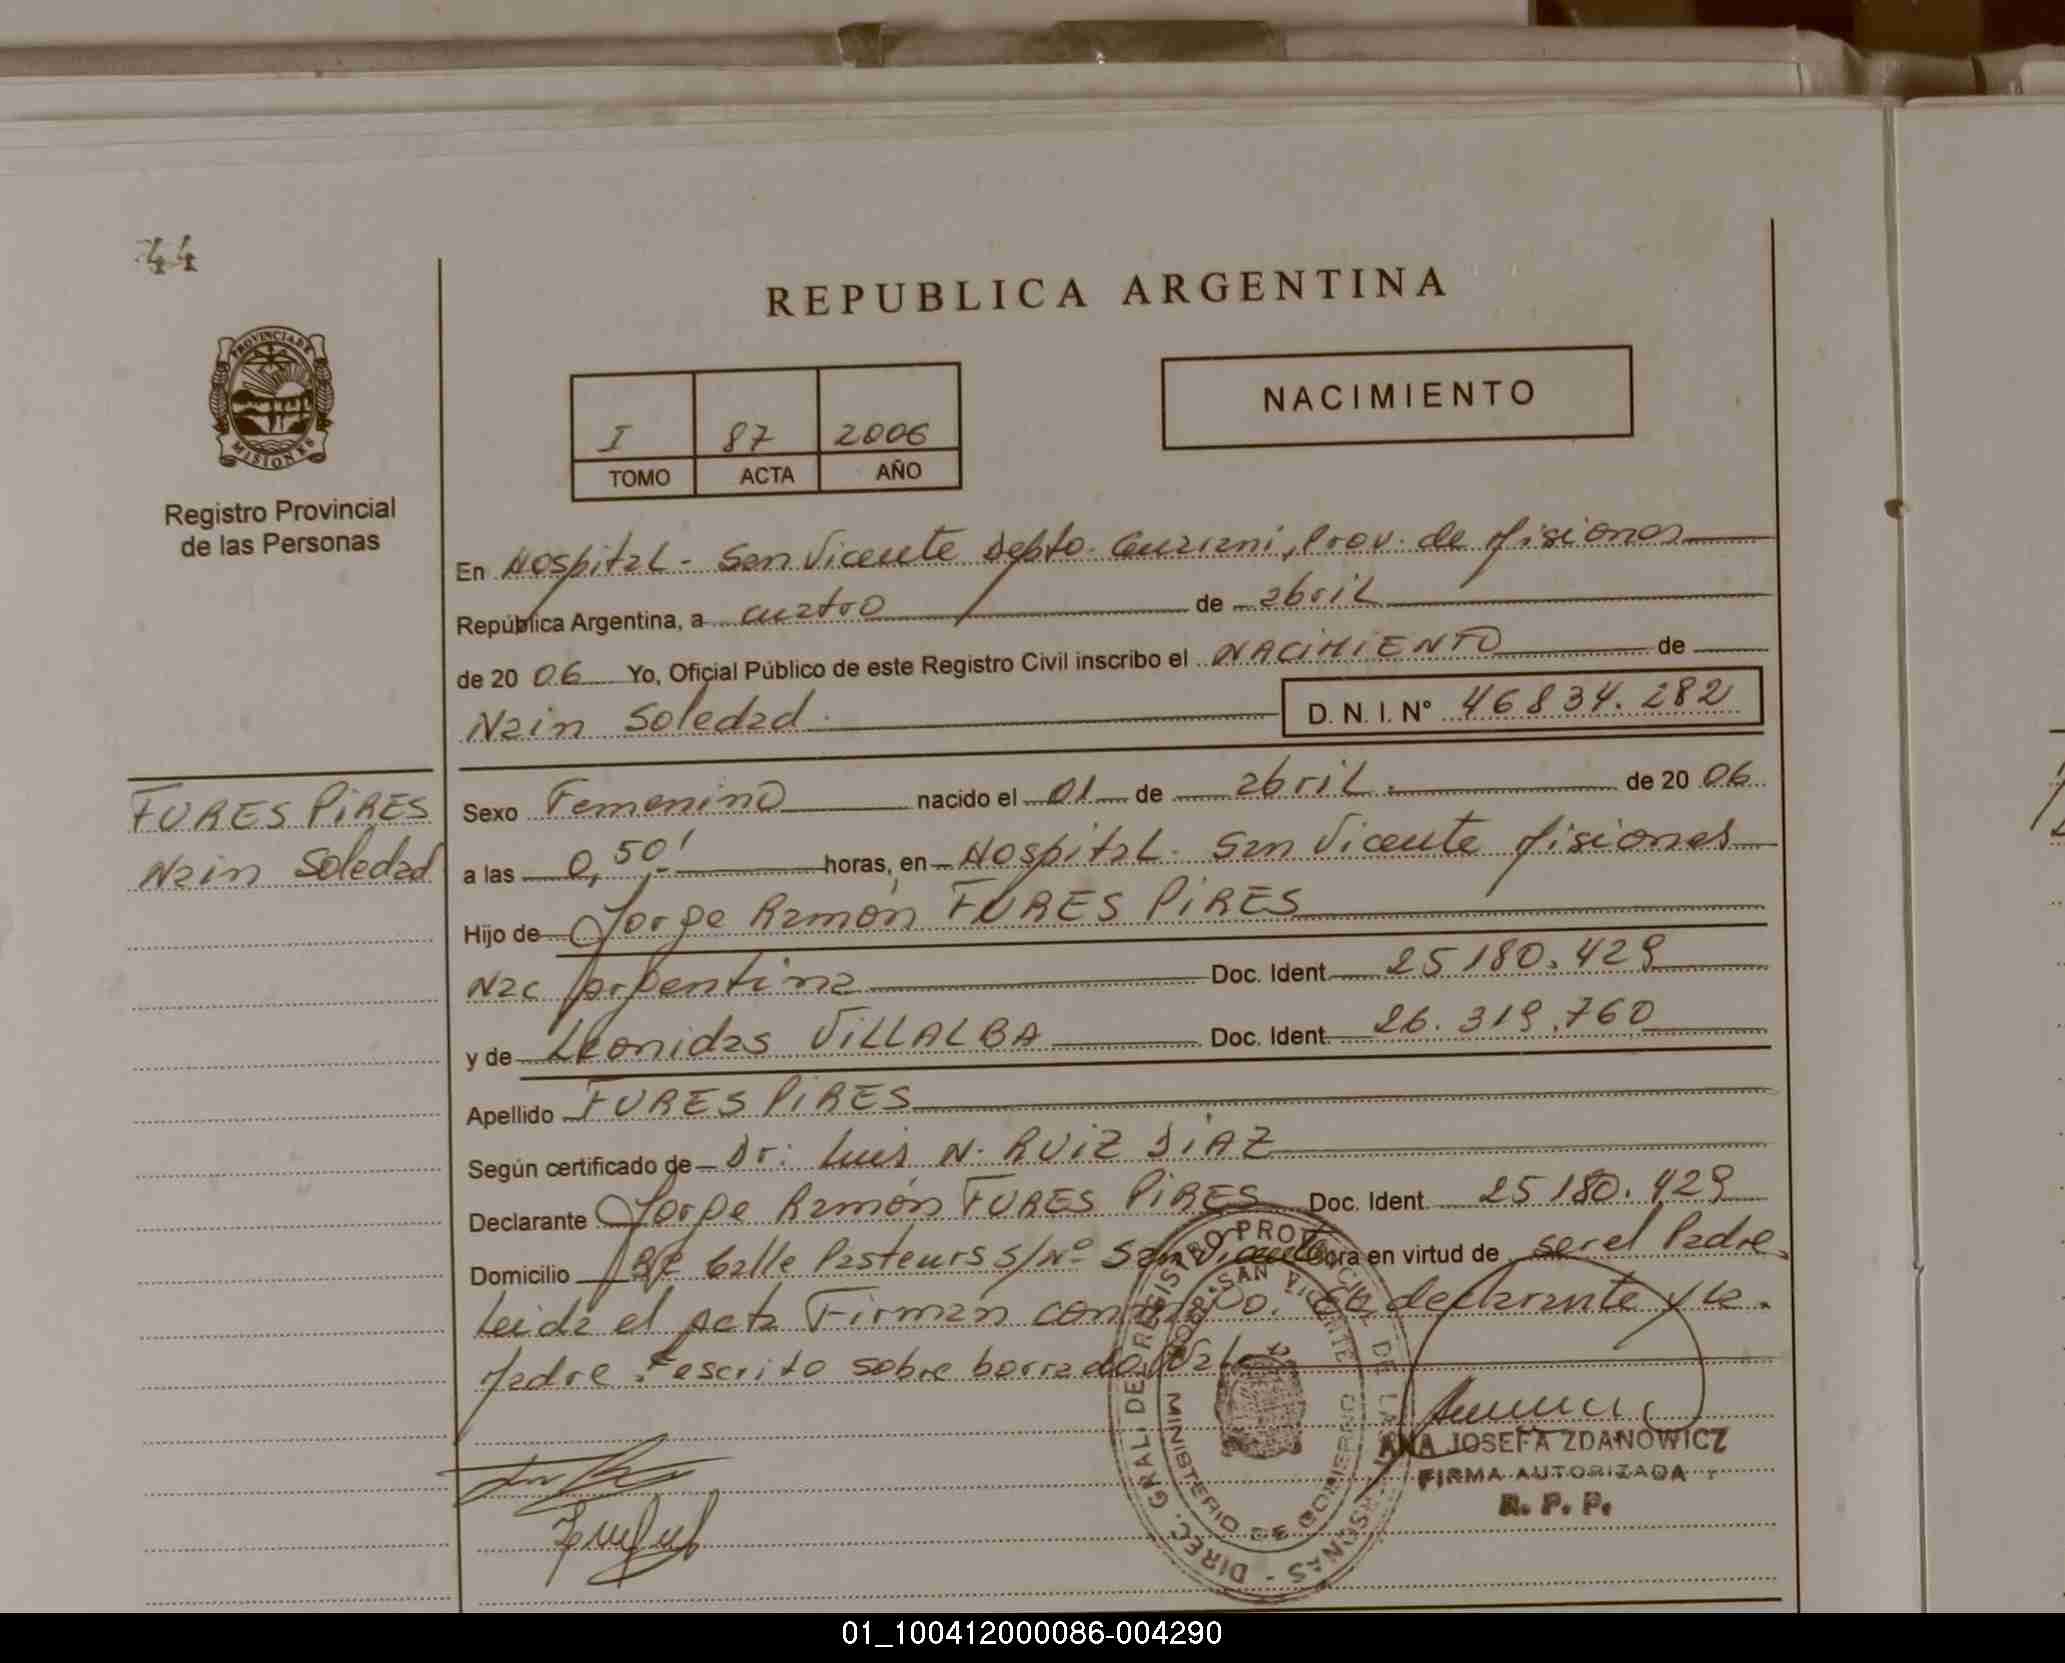 44
REPUBLICA ARGENTINA
PROVINCIA DE MISIONES
I 87 2006
TOMO ACTA AÑO
NACIMIENTO
Registro Provincial
de las Personas
En Hospital - San Vicente Depto. Guarani, Prov. de Misiones
República Argentina, a cuatro de abril
de 2006 Yo, Oficial Público de este Registro Civil inscribo el NACIMIENTO de
Nain Soledad. D. N. I. N° 46834.282
FURES PIRES
Nain Soledad
Sexo Femenino nacido el 01 de abril. de 2006
a las 0,50' horas, en Hospital - San Vicente Misiones
Hijo de Jorge Ramón FURES PIRES
Nac Argentina Doc. Ident. 25180.429
y de Leonidas VILLALBA Doc. Ident. 26.319.760
Apellido FURES PIRES
Según certificado de Dr: Luis N. RUIZ DIAZ
Declarante Jorge Ramón FURES PIRES Doc. Ident. 25180.429
Domicilio Calle Pasteurs S/Nº San Vicente obra en virtud de ser el Padre
Leida el Acta Firman conmigo. declarante y la
Madre. escrito sobre borrado Vale
DIREC. GRAL. DEL REGISTRO PROVINCIAL DE LAS PERSONAS
SAN VICENTE
MINISTERIO DE GOBIERNO
ANA JOSEFA ZDANOWICZ
FIRMA AUTORIZADA
R. P. P.
01_100412000086-004290